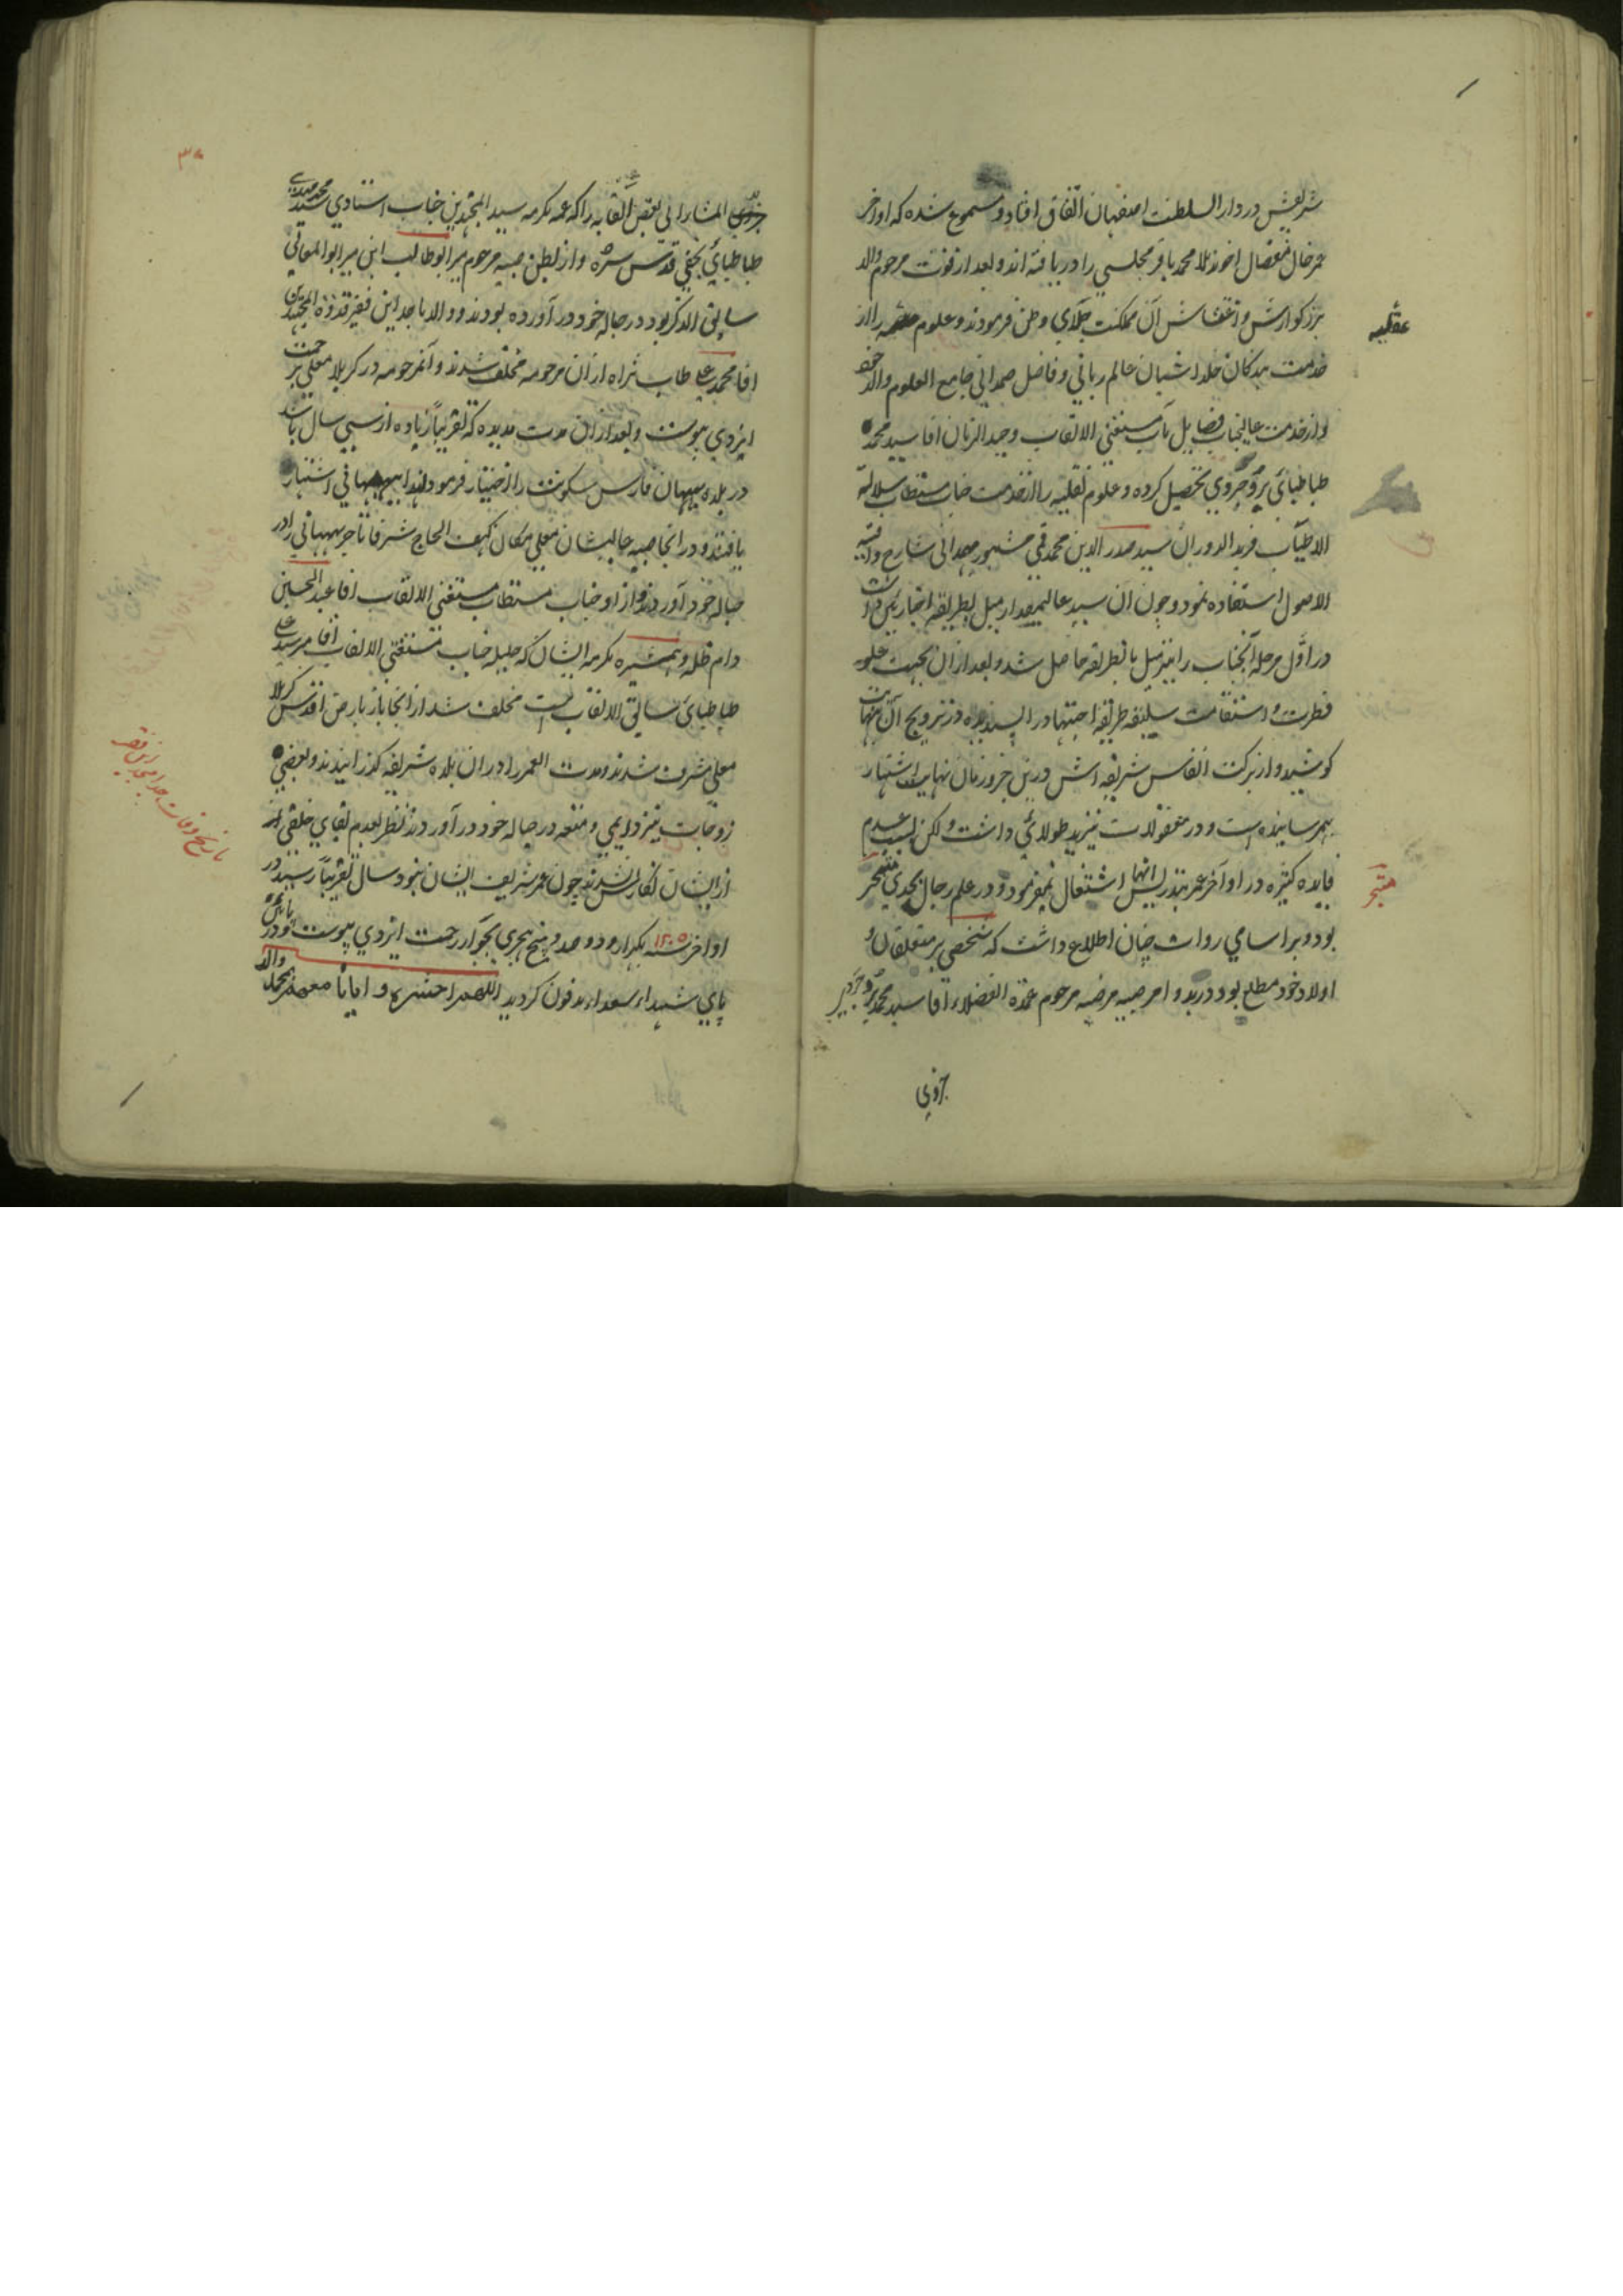 شریفش در دار السلطنت اصفهان اتفاق افتاد و مسموع شده که اواخر
عمر خال مفضال اخوند ملا محمد باقر مجلسی را دریافته اند و بعد از فوت مرحوم والد
بزرگوارش و اغتشاش آن مملکت جلای وطن فرمودند و علوم را از
عقلیه
خدمت بندکان خلد اشیان عالم ربانی و فاضل صمدانی جامع العلوم والد خود
و از خدمت عالیجناب فضایل مآب مستغنی الالقاب وحید الزمان اقا سید محمد
طباطبائی بروجردی تحصیل کرده و علوم نقلیه را از خدمت جناب مستطاب سلالة
الاطیاب فرید الدوران سید صدر الدین محمد قمی مشهور بهمدانی شارح وافیه
الاصول استفاده نمود و چون ان سید عالیمقدار میل بطریقه اخباریین داشت
در اول مرحله آنجناب را نیز میل بانطریقه حاصل شد و بعد از ان بجهت علو
فطرت و استقامت سلیقه طریقه اجتهاد را پسندیده در ترویج آن نهایت
کوشید و از برکت انفاس شریفه اش درین جزو زمان نهایت اشتهار
بهم رسانیده است و در معقولات نیز ید طولائی داشت و لکن بسبب عدم
فایده کثیره در اواخر عمر بتدریس انها اشتغال نمیفرمود و در علم رجال بحدی متبحر
متبحر
بود و بر اسامی روات چنان اطلاع داشت که شخصی بر متعلقان و
اولاد خود مطلع بود در بدو امر صبیه مرضیه مرحوم عمدة الفضلاء آقا سید محمد بروجردی
جزوی
۳۰
المشار الی بعض القابه را که عمه مکرمه سید المجتهدین جناب استادی سید محمد مهدی
طباطبائی نجفی قدس سره و از بطن صبیه مرحوم میر ابو طالب ابن میر ابو المعالی
سابق الذکر بود در حباله خود در آورده بودند و والد ماجد این فقیر قدوة المجتهدین
اقا محمد علی طاب ثراه از ان مرحومه مخلف شدند و آنمرحومه در کربلا معلی برحمت
ایزدی پیوست و بعد از ان مدت مدیده که تقریباً زیاده از سی سال باشد
در بلده بهبهان فارس سکونت را اختیار فرمودند لهذا ببهبهانی اشتهار
یافتند و در انجا صبیه عالیشان معلی مکان کهف الحاج شرفا تاجر بهبهانی را در
حباله خود آوردند و از او جناب مستطاب مستغنی الالقاب اقا عبد الحسین
دام ظله و همشیره مکرمه ایشان که حلیله جناب مستغنی الالقاب آقا میر سید علی
طباطبائی سابق الالقاب است مخلف شد از انجا باز بارض اقدس کربلا
معلی مشرف شدند و مدت العمر را در ان بلده شریفه کذرانیدند و بعضی
زوجات نیز دایمی و متعه در حباله خود در آوردند نظر بعدم بقای خلقی از
ازیشان چون عمر شریف ایشان بنود سال تقریباً رسید در
اواخر سنه ۱۲۰۵ یکهزار و دوصد و پنج هجری بجوار رحمت ایزدی پیوست و در پائین
پای شهداء سعداء مدفون کردید اللهم احشره و ایانا مع محمد واله
تاریخ وفات جد امجد این فقیر